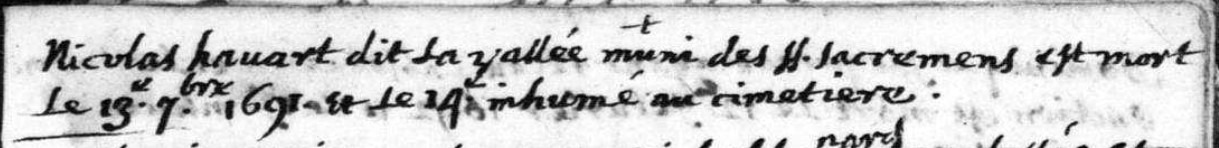 Nicolas havart dit La vallée muni des SS. sacremens est mort
Le 13.e 7.bre 1691. Et Le 14.e inhumé au cimetiere.
nord